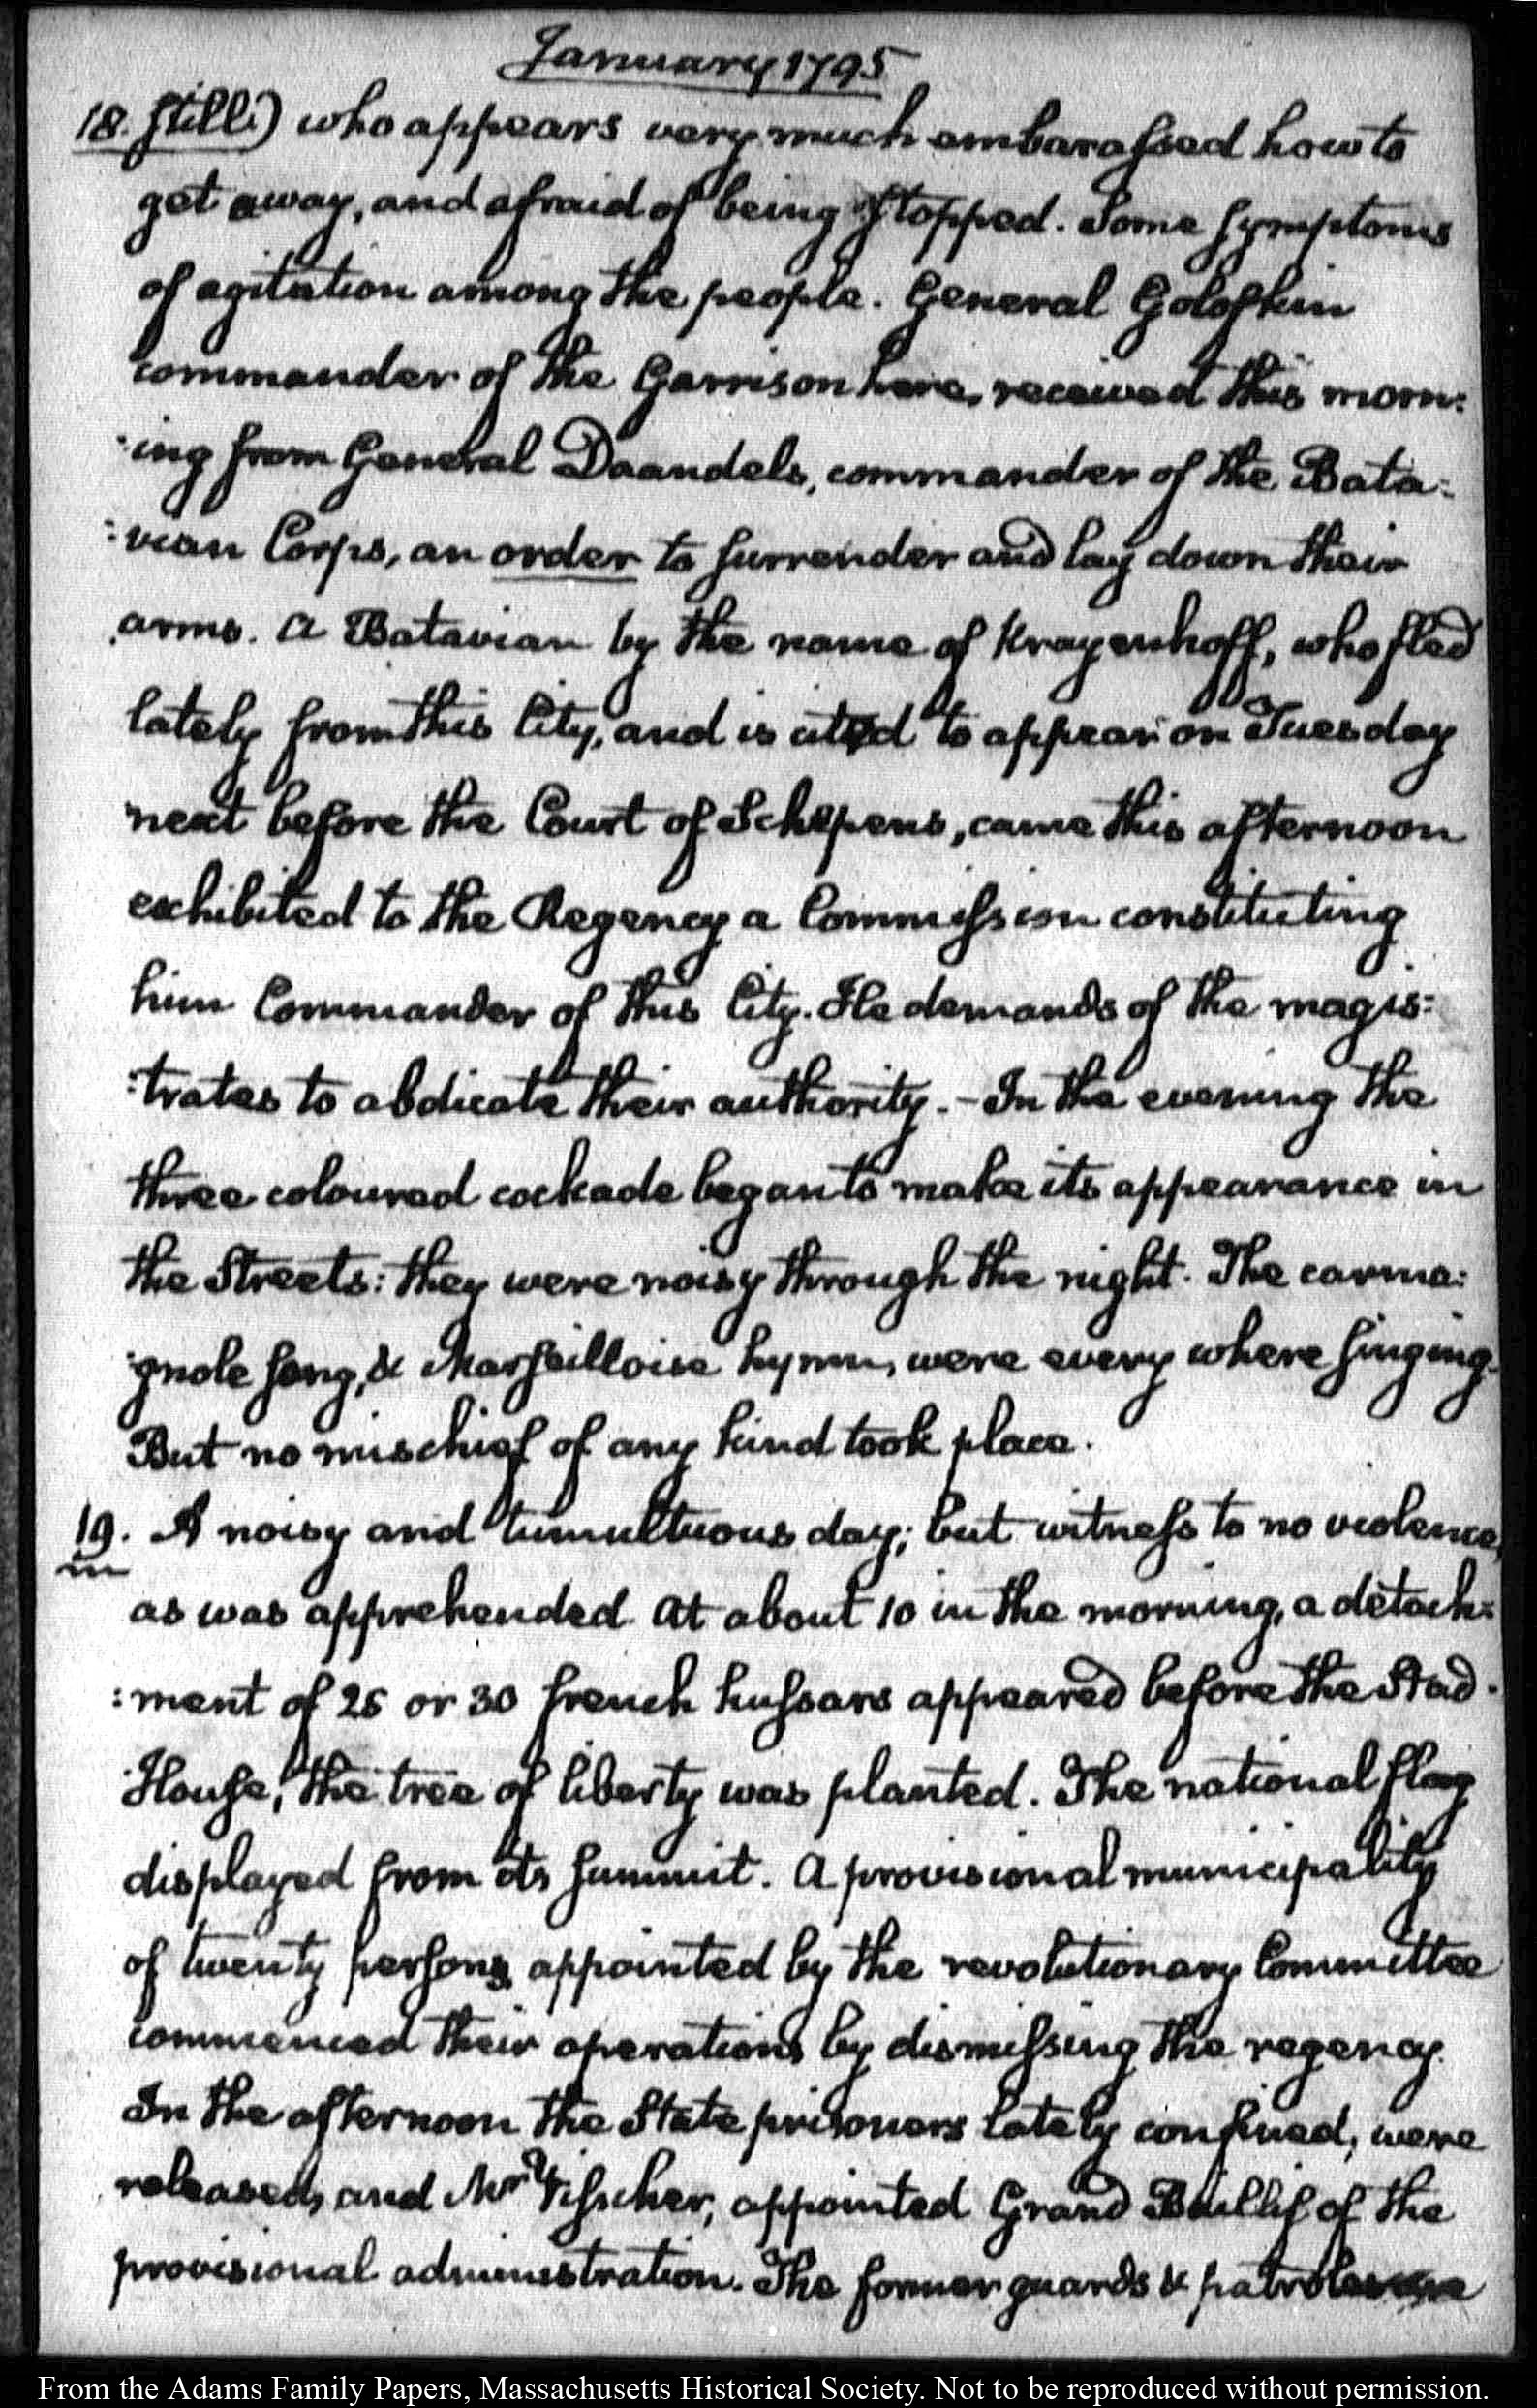 January 1795
18. still.) who appears very much embarassed how to
get away, and afraid of being stopped. Some symptoms
of agitation among the people. General Golofkin
commander of the Garrison here, received this morn:
:ing from General Daandels, commander of the Bata:
:vian Corps, an order to surrender and lay down their
arms. A Batavian by the name of Krayenhoff, who fled
lately from this City, and is cited to appear on Tuesday
next before the Court of Schepens, came this afternoon
exhibited to the Regency a Commission constituting
him Commander of this City. He demands of the magis:
:trates to abdicate their authority. – In the evening the
three coloured cockade began to make its appearance in
the Streets: they were noisy through the night. The carma:
:gnole song, & Marseilloise hymn, were every where singing.
But no mischief of any kind took place.
19. A noisy and tumultuous day; but witness to no violence,
as was apprehended At about 10 in the morning, a detach:
:ment of 25 or 30 french hussars appeared before the Stad-
House, the tree of liberty was planted. The national flag
displayed from its summit. A provisional municipality
of twenty persons appointed by the revolutionary Committee
commenced their operations by dismissing the regency.
In the afternoon the State prisoners lately confined, were
released, and Mr Visscher, appointed Grand Bailiff of the
provisional administration. The former guards & patroles
From the Adams Family Papers, Massachusetts Historical Society. Not to be reproduced without permission.